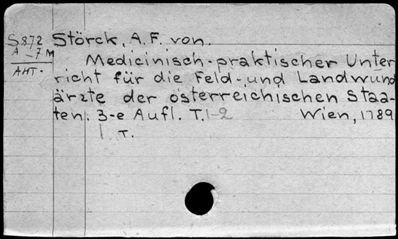 S872 Störck, A.F. von.
A-7M
АНТ.
Medicinisch-praktischer Unter
richt für die Feld-und Landwund
ärzte der österreichischen Staa-
ten. 3-e Aufl. T.1-2 Wien, 1789
1 т.